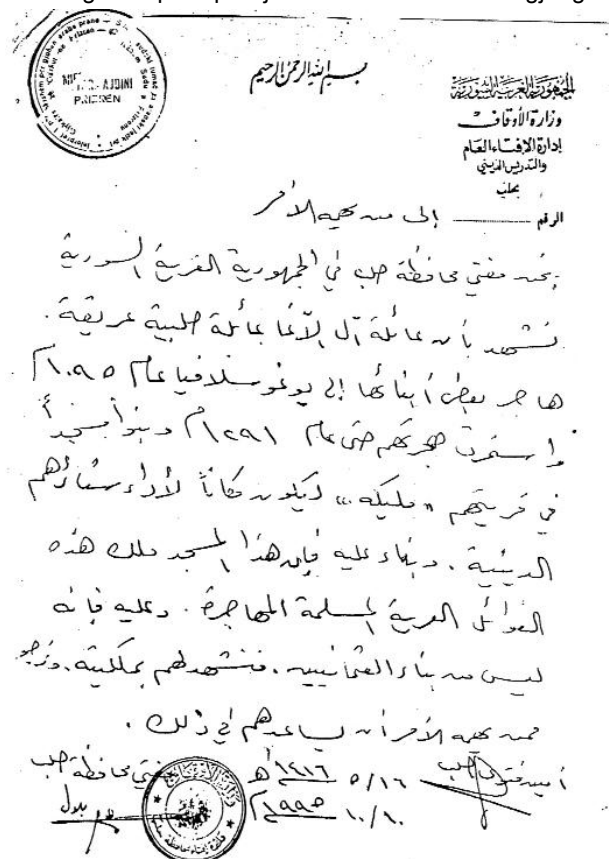 بسم الله الرحمن الرحيم
الجمهورية العربية السورية
وزارة الأوقاف
إدارة الافتاء العام
والتدريس الديني
بحلب
الرقم
إلى من يهمه الأمر
نحن مفتي محافظة حلب في الجمهورية العربية السورية
نشهد بأن عائلة آل الآغا عائلة حلبية عريقة.
هاجر بعض أبنائها إلى يوغوسلافيا عام ١٠٩٥م
واستمرت هجرتهم حتى عام ١٢٩١م وبنوا مسجداً
في قريتهم «مليكه» ليكون مكاناً لأداء شعائرهم
الدينية. وبناء عليه فإن هذا المسجد ملك هذه
العوائل العربية المسلمة المهاجرة. وعليه فإنه
ليس من بناء العثمانيين. فنشهد لهم بملكيته. ونرجو
ممن يهمه الأمر أن يساعدهم في ذلك.
أمين فتوى حلب
٥/١٦ ١٤١٦هـ
١٠/١٠ ١٩٩٥م
مفتي محافظة حلب
PRIZREN